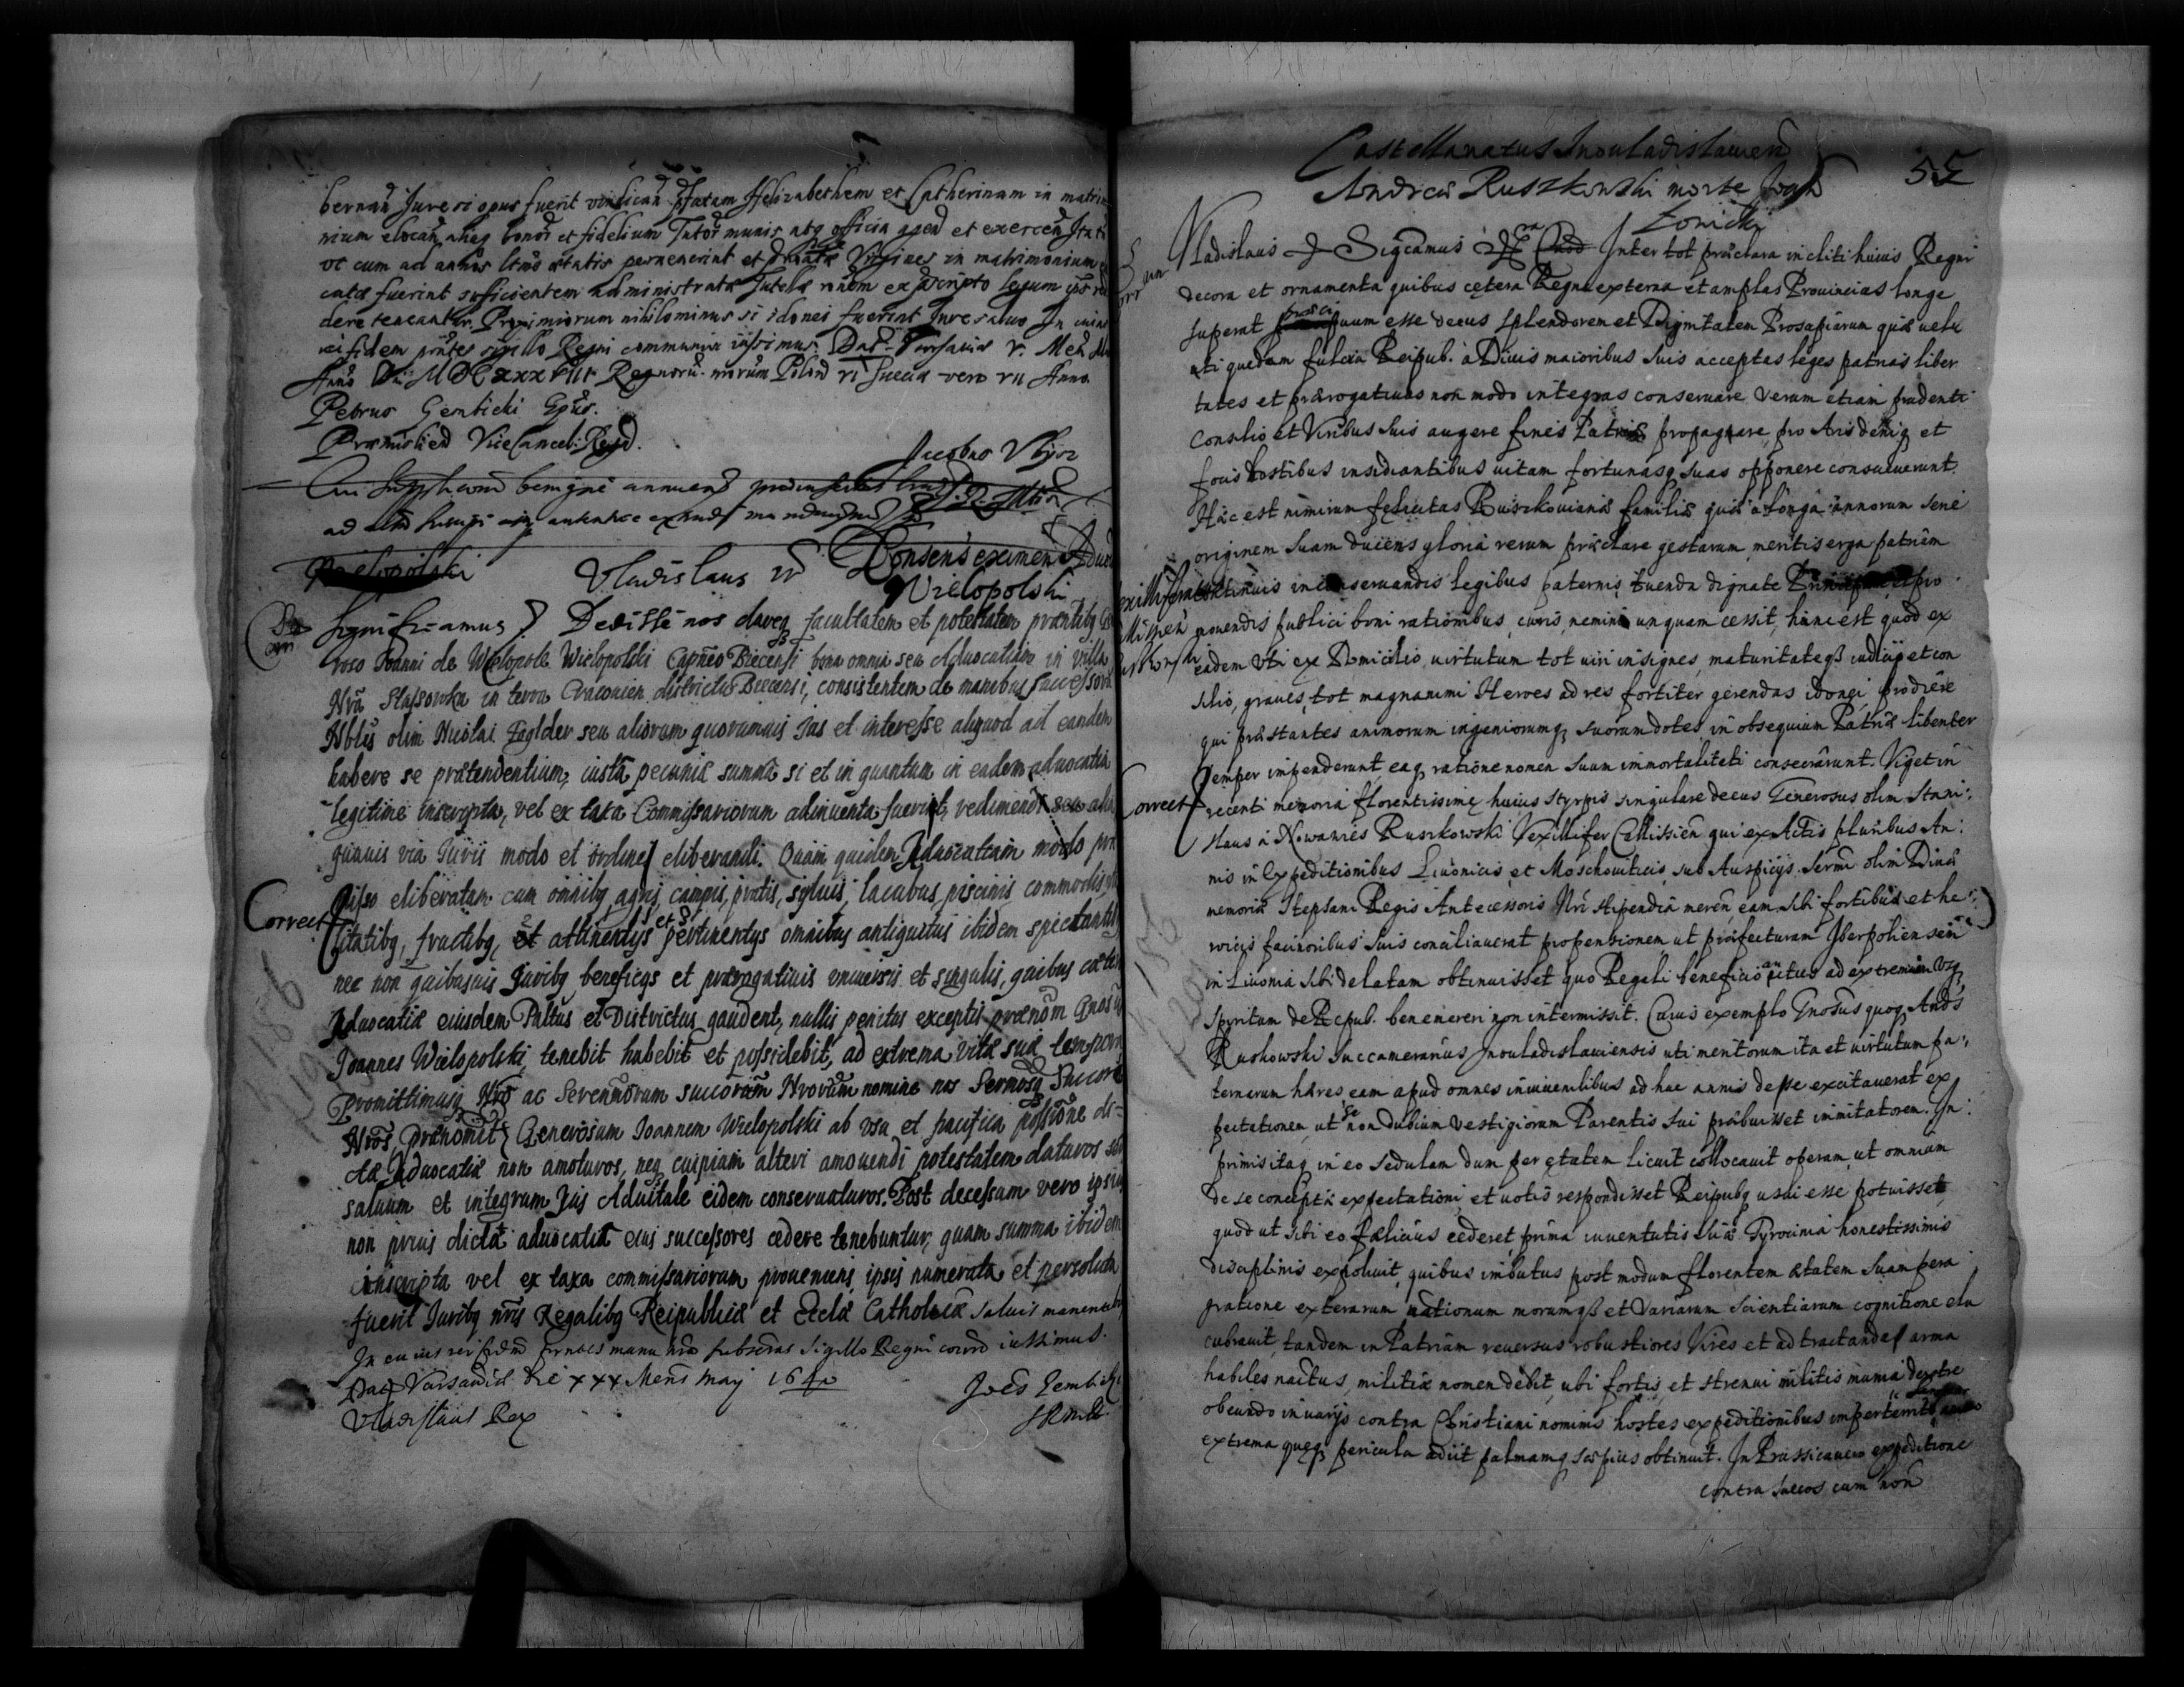 bernan Jure si opus fuerit vindican pfatam Helizabethem et Catherinam in matri
nium elocan aliaq bonor et fidelium Tutor munis atq officia agend et exercen Ita
vt cum ad annos ltmos ætatis pervenerint et Virgines in matrimonium
catæ fuerint sufficientem administratæ Tutelæ ronem ex præscripto legum
dere teneantur. Proximiorum nihilominus si idonei fuerint Jure saluo. In cuius
rei fidem pntes sigillo Regni communiri iussimus. Dat. Varsaviæ V. Men
Anno Dni MDCXXXVIII Regnoru. nrorum Polon VI Sueciæ vero VII Anno
Petrus Gembicki Epus.
Præmislien Vicecancel: Regn.
Jacobus
Cui supplicaoni benigne annuend præinsertas
ad
Wielopolski
Vladislaus IV
Consens eximen Aduo
Wielopolski
Significamus Dedisse nos dareq facultatem et potestatem præntibq Ge
roso Joanni de Wielopole Wielopolski Capneo Biecensi bona omnia seu Aduocatiam in villa
Nra Stassowka in terra Cracovien districtus Biecensi, consistentem de manibus successorum
Nblis olim Nicolai Zeglder seu aliorum quorumuis Jus et interesse aliquod ad eandem
habere se prætendentium, iusta pecuniæ summa si et in quantum in eadem aduocatia
legitime inscripta, vel ex taxa Commissariorum adinuenta fuerint, redimendi seu alia
quauis via Juris modo et ordine eliberandi. Quam quidem Aduocatiam modo præ
misso eliberatam cum omnibq agris, campis, pratis, syluis, lacubus, piscinis commodis, vti
Correct
litatibq, fructibq, et attinentijs et pertinentijs omnibus antiquitus ibidem spectantibq
nec non quibusuis Juribq beneficijs et prærogatiuis vniuersis et singulis, quibus cæteri
Aduocatiæ eiusdem Pnltus et Districtus gaudent, nullis penitus exceptis prænom Gnosus
Joannes Wielopolski tenebit habebit et possidebit, ad extrema vitæ suæ tempora
Promittimusq Nro ac Serenmorum succorum Nrorum nomine nos Sermosq Succores
Nros Prænomit Generosum Joannem Wielopolski ab vsu et pacifica possione di-
ctæ Aduocatiæ non amoturos, neq cuipiam alteri amouendi potestatem daturos sed
saluum et integrum Jus Aduitale eidem conseruaturos. Post decessum vero ipsius
non prius dicta aduocatia eius successores cedere tenebuntur, quam summa ibidem
inscripta vel ex taxa commissariorum proueniens ipsis numerata et persoluta
fuerit Juribq nris Regalibq Reipublicæ et Eccla Catholicæ saluis manentibq
In cuius rei fidem pntes manu nra subscras Sigillo Regni comri iussimus.
Dat Varsaviæ die XXX Mens May 1640
Vladislaus Rex
Joes Gembicki
Castellanatus Inouladislauien
Andreæ Ruszkowski morte Joan
Zonicki
55
Vladislaus Sigcamus Inter tot præclara incliti huius Regni
decora et ornamenta quibus cetera Regna externa et amplas Prouincias longe
superat præcipuum esse decus splendorem et Dignitatem Prosapiarum quæ velu
uti quædam fulcra Reipub. a Diuis maioribus suis acceptas leges patrias liber
tates et prærogatiuas non modo integras conseruare verum etiam prudenti
Consilio et Viribus suis augere fines Patriæ propagare, pro Aris deniq et
focis hostibus insidiantibus uitam fortunasq suas opponere consueuerunt.
Hæc est nimirum felicitas Ruszkouianæ familiæ quæ a longa annorum serie
originem suam ducens gloria rerum præclare gestarum, meritis erga patriam
continuis in conseruandis legibus paternis tuenda dignate et pro
mouendis publici boni rationibus, curis, nemini unquam cessit, hinc est quod ex
eadem vti ex Domicilio uirtutum tot uiri insignes, maturitateqs iudicij et con
silio, graues, tot magnanimi Heroes ad res fortiter gerendas idonei prodiere
qui præstantes animorum ingeniorumq suorum dotes, in obsequium Patriæ libenter
semper impenderunt, eaq ratione nomen suum immortalitati consecrarunt. Viget in
Correct
recenti memoria florentissimę huius styrpis singulare decus Generosus olim Stani:
slaus a Nowawies Ruszkowski Vexillifer Callissien qui ex Actis pluribus An:
nis in Expeditionibus Liuonicis et Moschouiticis sub Auspicijs Sermi olim Diuæ
memoriæ Stephani Regis Antecessoris Nri stipendia meren, eam sibi fortibus et he:
roicis facinoribus suis conciliauerat propensionem ut præfecturam Iberpoliensem
in Liuonia sibi delatam obtinuisset quo Regali beneficio auctus ad extremum vsq
Spiritum de Repub. benemereri non intermissit. Cuius exemplo Gnosus quoq Ands
Ruskowski Succamerarius Inouladislauiensis uti meritorum ita et uirtutum pa:
ternarum hæres eam apud omnes in iuuenilibus ad huc annis de se excitauerat ex
pectationem, ut se non dubium vestigiorum Parentis sui præbuisset immitatorem. In:
primis itaq in eo sedulam dum per ętatem licuit collocauit operam, ut omnium
de se conceptæ expectationi et uotis respondisset Reipubq usui esse potuisset
quod ut sibi eo fælicius cederet, prima iuuentutis suæ Tyrocinia honestissimis
disciplinis expoliuit, quibus imbutus post modum florentem ætatem suam pera
gratione exterarum nationum morumqs et variarum scientiarum cognitione elu
cubrauit, tandem in Patriam reuersus robustiores vires et ad tractanda arma
habiles nactus, militiæ nomen dedit, ubi fortis et strenui militis munia dextre
obeundo in uarijs contra Christiani nominis hostes expeditionibus imperterrite
extrema queq pericula adijt palmamq sæpius obtinuit. In Prussica vero expeditione
contra suecos cum non